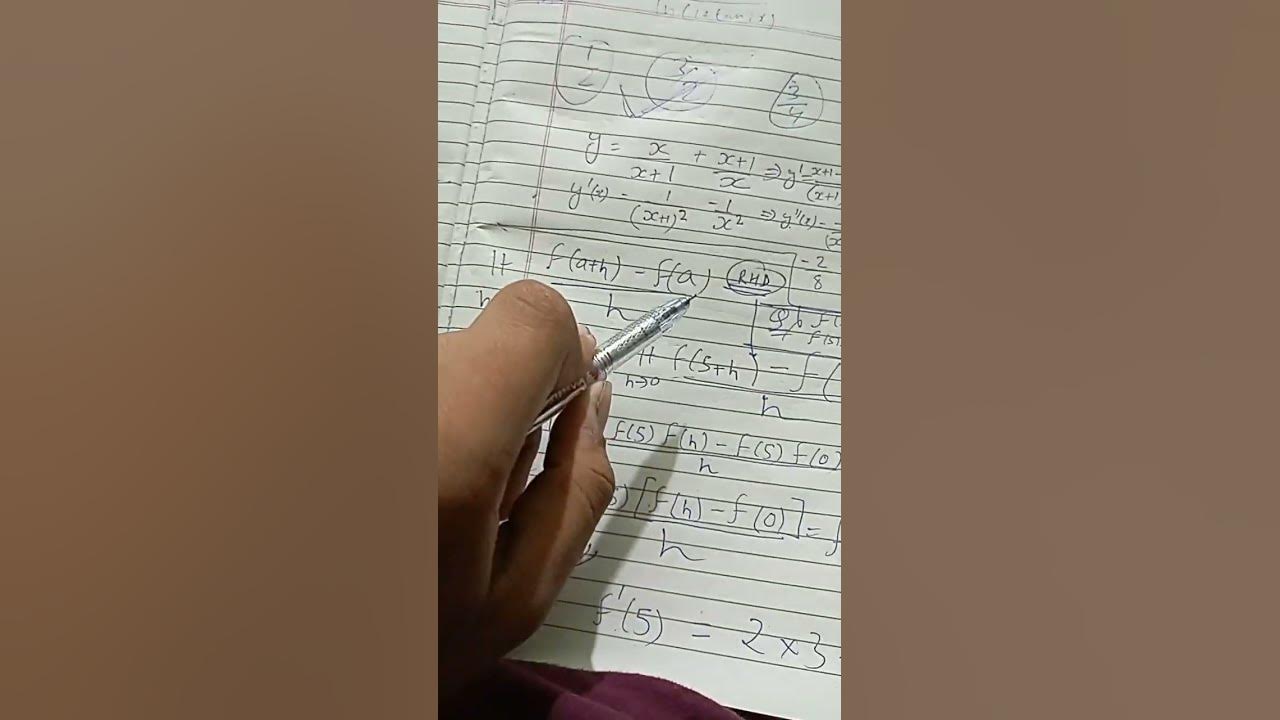 1
2
3
2
3
4
y = x/x+1 + x+1/x ⇒ y' = x+1 -/(x+1)
y'(x) - 1/(x+1)² - 1/x² ⇒ y''(x) -
-2/8
lt f(a+h) - f(a)/h RHD
lt h→0 f(5+h) - f(/h
f(5) f(h) - f(5) f(0)/h
) [f(h) - f(0)]/h = f
f'(5) = 2 × 3